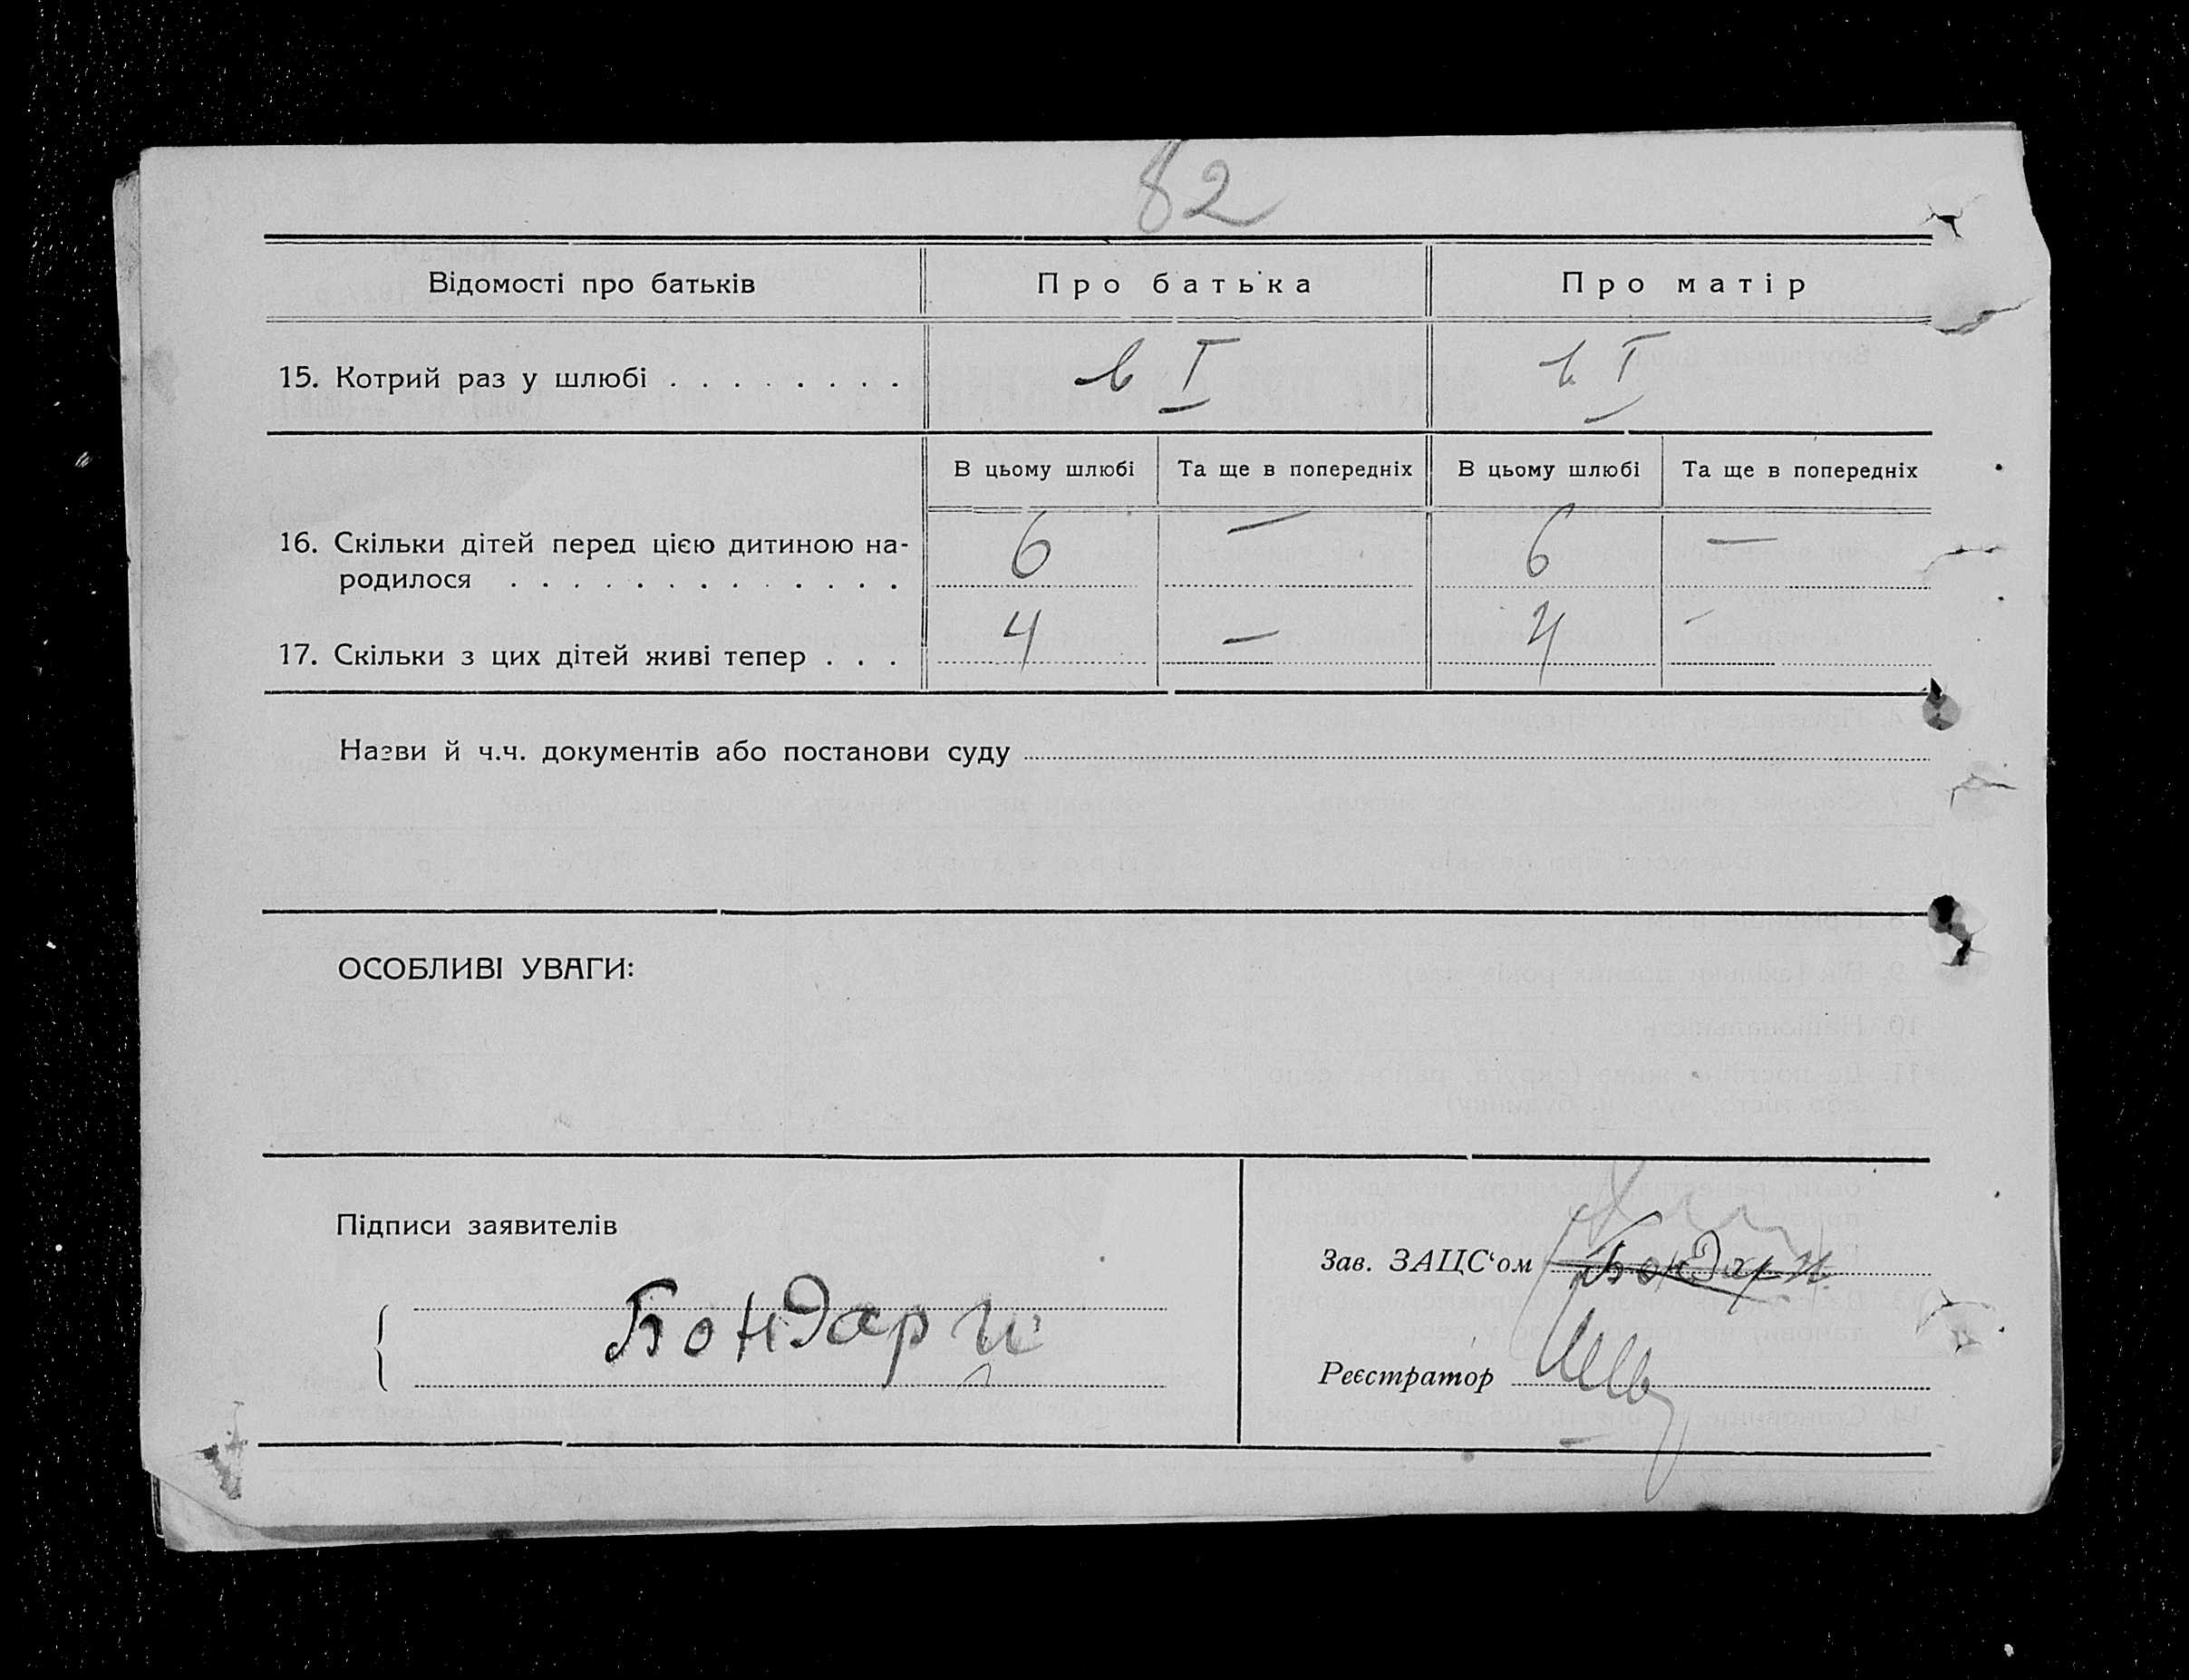 82
Відомості про батьків Про батька Про матір
15. Котрий раз у шлюбі . . . . . . . . в I в I
В цьому шлюбі Та ще в попередніх В цьому шлюбі Та ще в попередніх
16. Скільки дітей перед цією дитиною на-
родилося . . . . . . . . . . . . . 6 — 6 —
17. Скільки з цих дітей живі тепер . . . 4 — 4 —
Назви й ч.ч. документів або постанови суду
ОСОБЛИВІ УВАГИ:
Підписи заявителів
Бондар
Зав. ЗАЦС'ом Бондар
Реєстратор